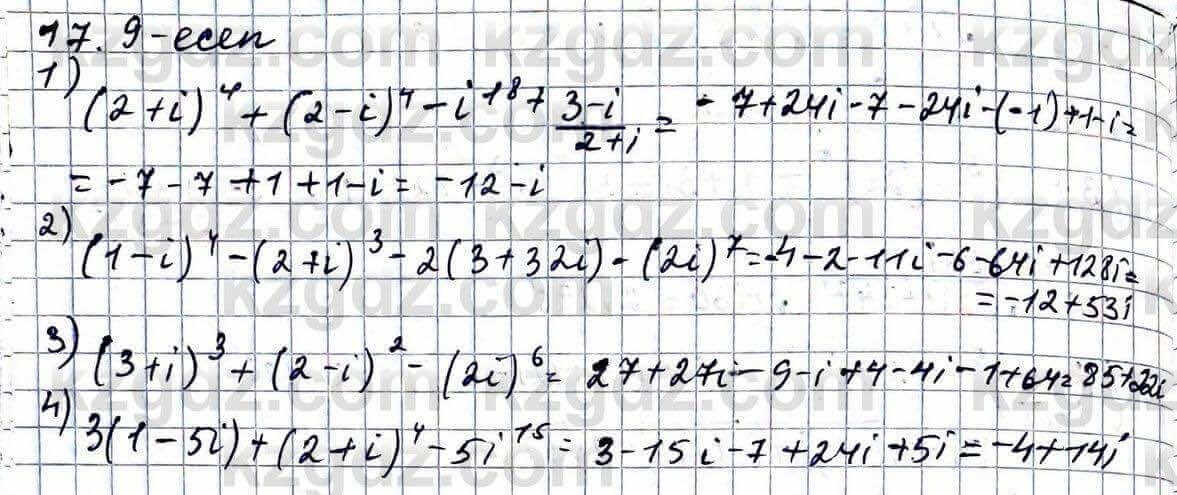 17.9-есеп
1)
(2+i)^4 + (2-i)^4 - i^18 + (3-i)/(2+i) = -7+24i-7-24i-(-1)+1-i=
= -7-7+1+1-i = -12-i
2) (1-i)^4 - (2+i)^3 - 2(3+32i) - (2i)^7 = -4-2-11i-6-64i+128i=
= -12+53i
3) (3+i)^3 + (2-i)^2 - (2i)^6 = 27+27i-9-i+4-4i-1+64=85+22i
4) 3(1-5i)+(2+i)^4-5i^15 = 3-15i-7+24i+5i=-4+14i
kzgdz.com